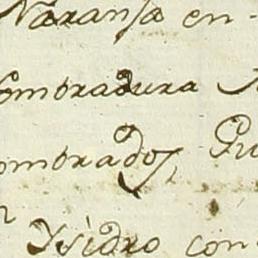 Naransa en-
ombradura
ombrados,
Ysidro con